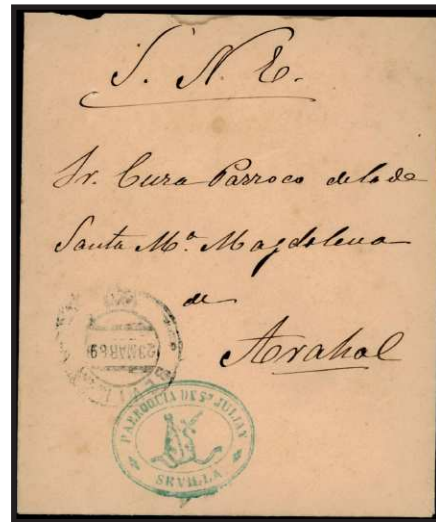 S. N. E.
Sr. Cura Párroco de la de
Santa Mª Magdalena
de
Arahal
23 MAR 89
PARROQUIA DE Sn JULIAN
SEVILLA